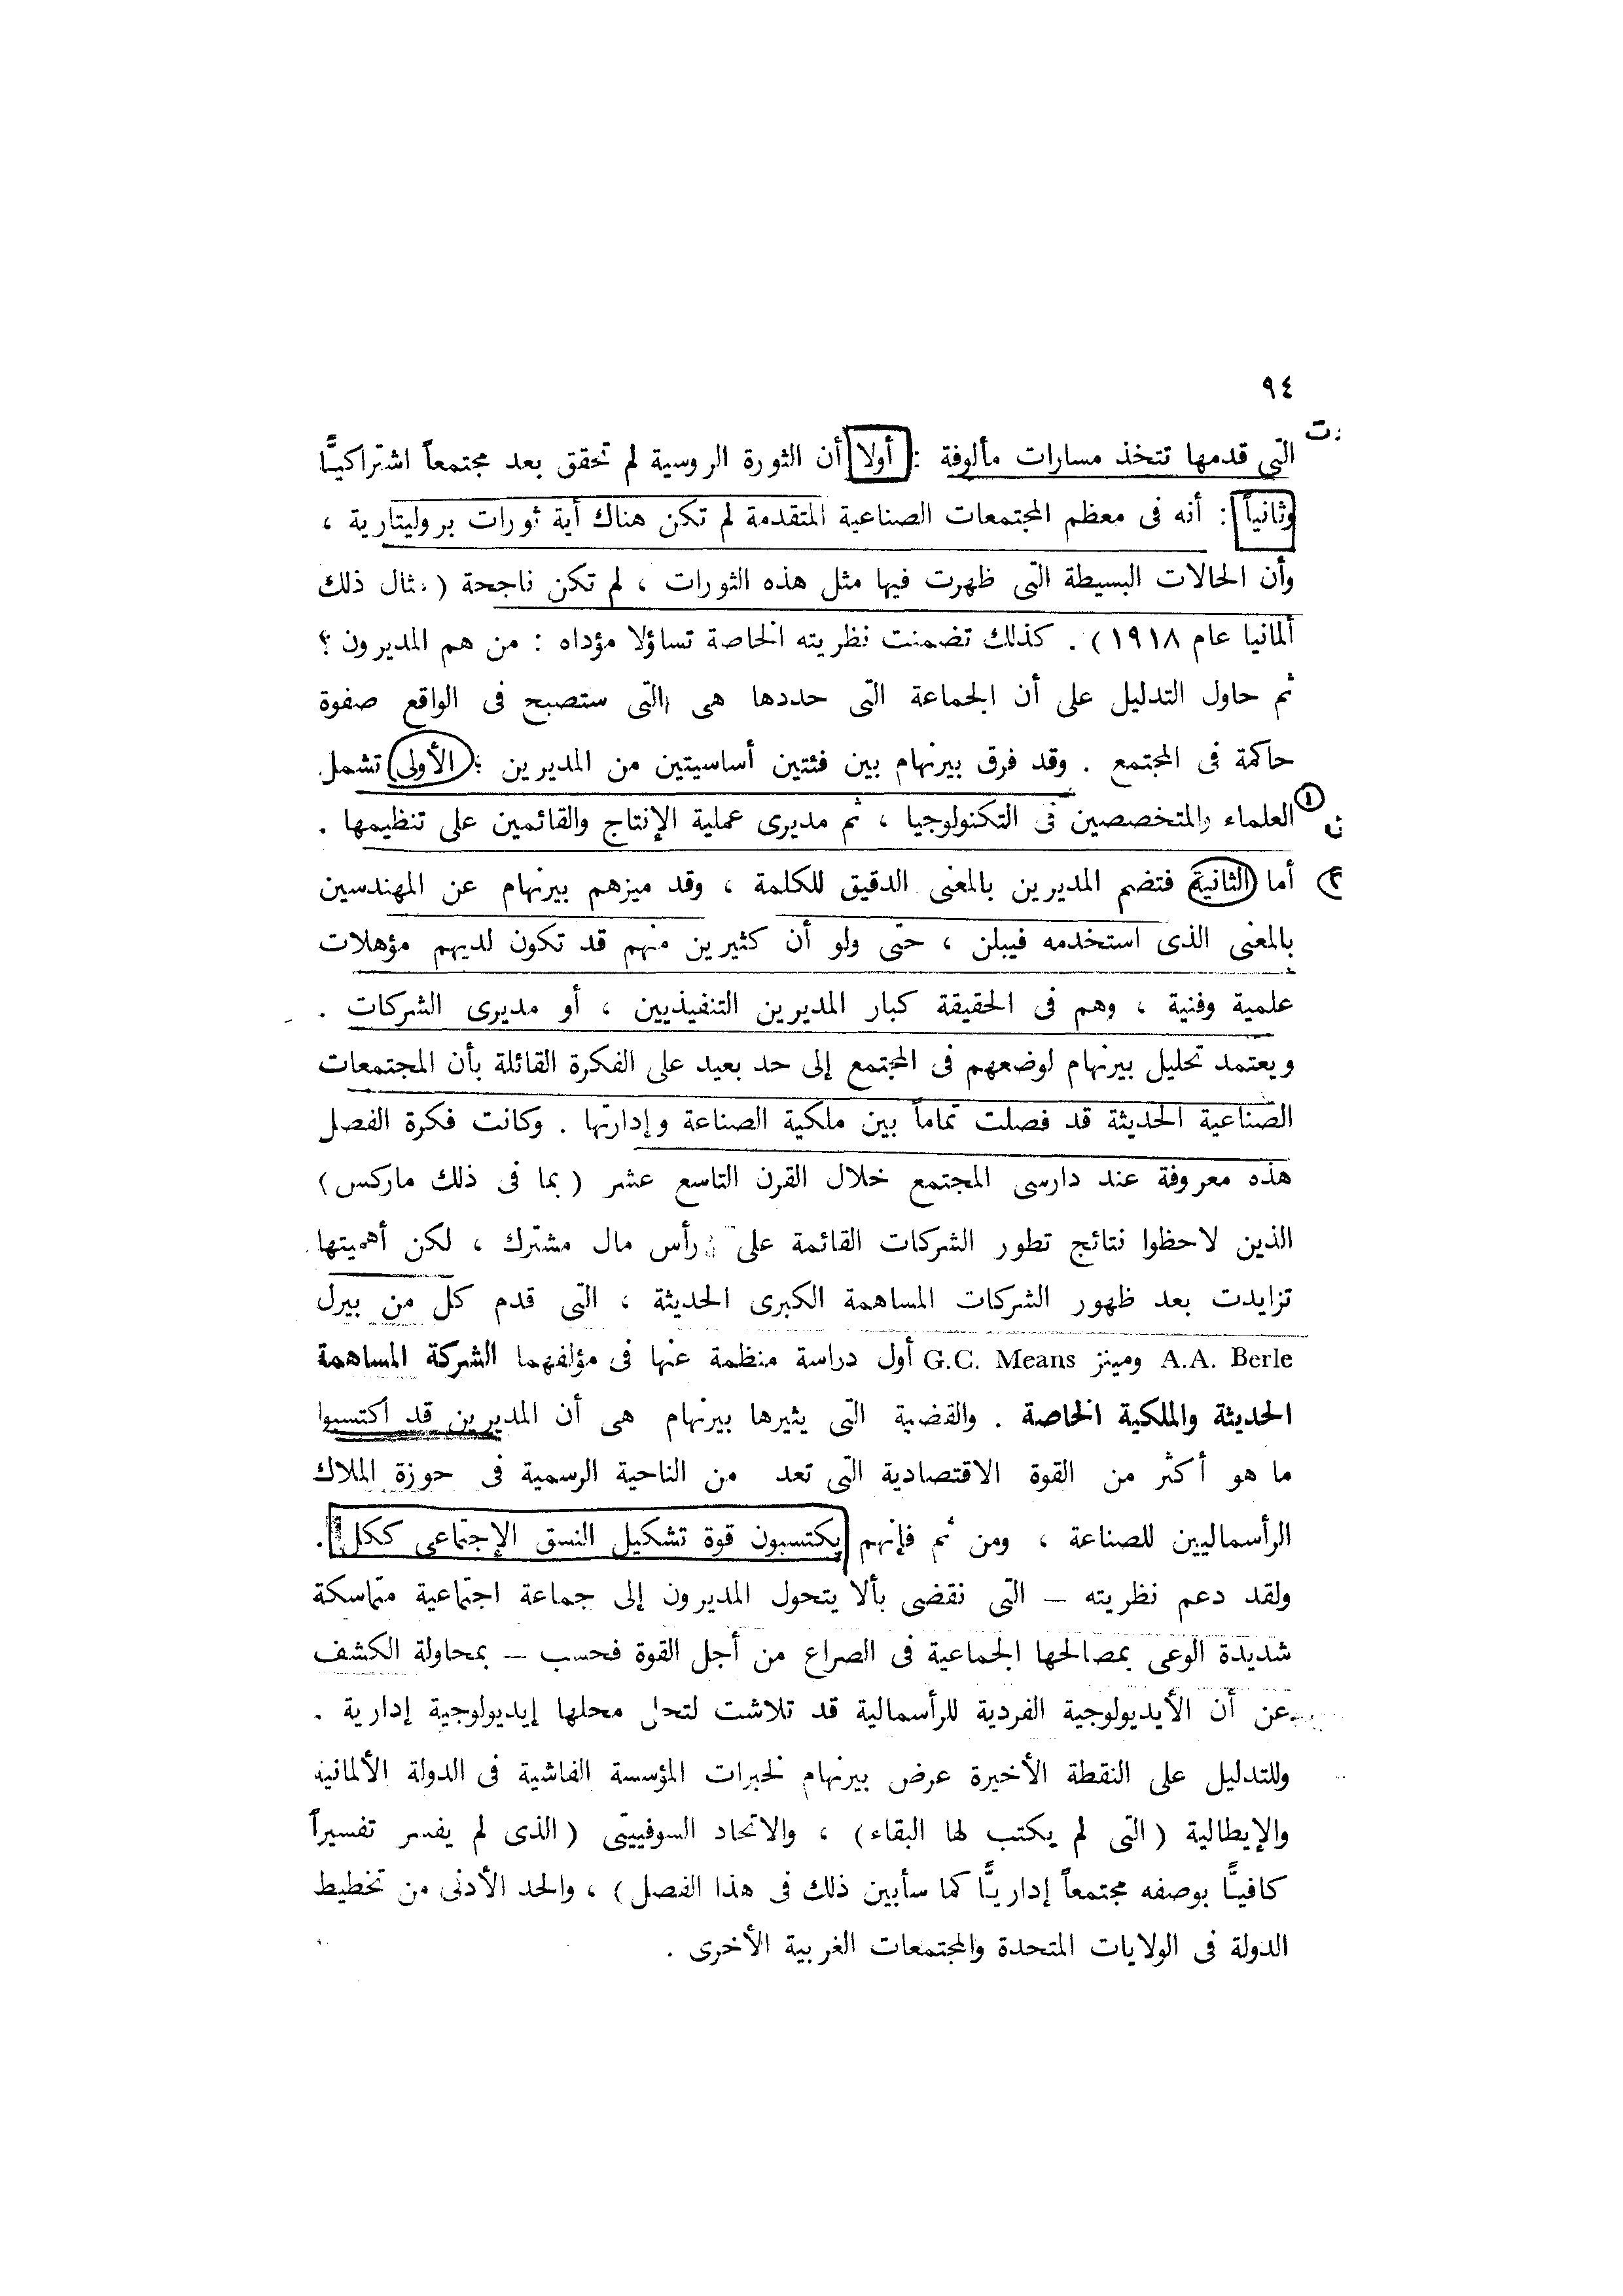 ٩٤
التى قدمها تتخذ مسارات مألوفة : أولا أن الثورة الروسية لم تحقق بعد مجتمعاً اشتراكيًّا
وثانياً : أنه فى معظم المجتمعات الصناعية المتقدمة لم تكن هناك أية ثورات بروليتارية ،
وأن الحالات البسيطة التى ظهرت فيها مثل هذه الثورات ، لم تكن ناجحة ( مثال ذلك
ألمانيا عام ١٩١٨ ) . كذلك تضمنت نظريته الخاصة تساؤلا مؤداه : من هم المديرون ؟
ثم حاول التدليل على أن الجماعة التى حددها هى التى ستصبح فى الواقع صفوة
حاكمة فى المجتمع . وقد فرق بيرنهام بين فئتين أساسيتين من المديرين : الأولى تشمل
العلماء والمتخصصين فى التكنولوجيا ، ثم مديرى عملية الإنتاج والقائمين على تنظيمها . ١
أما الثانية فتضم المديرين بالمعنى الدقيق للكلمة ، وقد ميزهم بيرنهام عن المهندسين ٢
بالمعنى الذى استخدمه فيبلن ، حتى ولو أن كثيرين منهم قد تكون لديهم مؤهلات
علمية وفنية ، وهم فى الحقيقة كبار المديرين التنفيذيين ، أو مديرى الشركات .
ويعتمد تحليل بيرنهام لوضعهم فى المجتمع إلى حد بعيد على الفكرة القائلة بأن المجتمعات
الصناعية الحديثة قد فصلت تماماً بين ملكية الصناعة وإدارتها . وكانت فكرة الفصل
هذه معروفة عند دارسى المجتمع خلال القرن التاسع عشر ( بما فى ذلك ماركس )
الذين لاحظوا نتائج تطور الشركات القائمة على رأس مال مشترك ، لكن أهميتها
تزايدت بعد ظهور الشركات المساهمة الكبرى الحديثة ، التى قدم كل من بيرل
A.A. Berle ومينز G.C. Means أول دراسة منظمة عنها فى مؤلفهما الشركة المساهمة
الحديثة والملكية الخاصة . والقضية التى يثيرها بيرنهام هى أن المديرين قد اكتسبوا
ما هو أكثر من القوة الاقتصادية التى تعد من الناحية الرسمية فى حوزة الملاك
الرأسماليين للصناعة ، ومن ثم فإنهم يكتسبون قوة تشكيل النسق الإجتماعى ككل .
ولقد دعم نظريته – التى نقضى بألا يتحول المديرون إلى جماعة اجتماعية متماسكة
شديدة الوعى بمصالحها الجماعية فى الصراع من أجل القوة فحسب – بمحاولة الكشف
عن أن الأيديولوجية الفردية للرأسمالية قد تلاشت لتحل محلها إيديولوجية إدارية .
وللتدليل على النقطة الأخيرة عرض بيرنهام لخبرات المؤسسة الفاشية فى الدولة الألمانية
والإيطالية ( التى لم يكتب لها البقاء ) ، والاتحاد السوفييتى ( الذى لم يفسر تفسيراً
كافيًّا بوصفه مجتمعاً إداريًّا كما سأبين ذلك فى هذا الفصل ) ، والحد الأدنى من تخطيط
الدولة فى الولايات المتحدة والمجتمعات الغربية الأخرى .